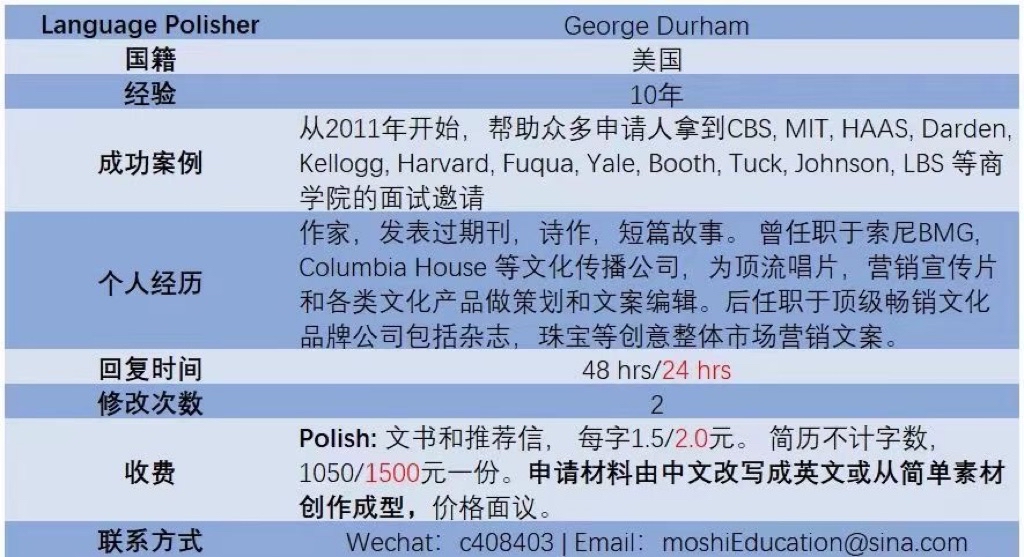 Language Polisher George Durham
国籍 美国
经验 10年
成功案例
从2011年开始，帮助众多申请人拿到CBS, MIT, HAAS, Darden,
Kellogg, Harvard, Fuqua, Yale, Booth, Tuck, Johnson, LBS 等商
学院的面试邀请
个人经历
作家，发表过期刊，诗作，短篇故事。 曾任职于索尼BMG,
Columbia House 等文化传播公司，为顶流唱片，营销宣传片
和各类文化产品做策划和文案编辑。后任职于顶级畅销文化
品牌公司包括杂志，珠宝等创意整体市场营销文案。
回复时间 48 hrs/24 hrs
修改次数 2
收费
Polish: 文书和推荐信， 每字1.5/2.0元。 简历不计字数，
1050/1500元一份。申请材料由中文改写成英文或从简单素材
创作成型，价格面议。
联系方式 Wechat：c408403 | Email：moshiEducation@sina.com